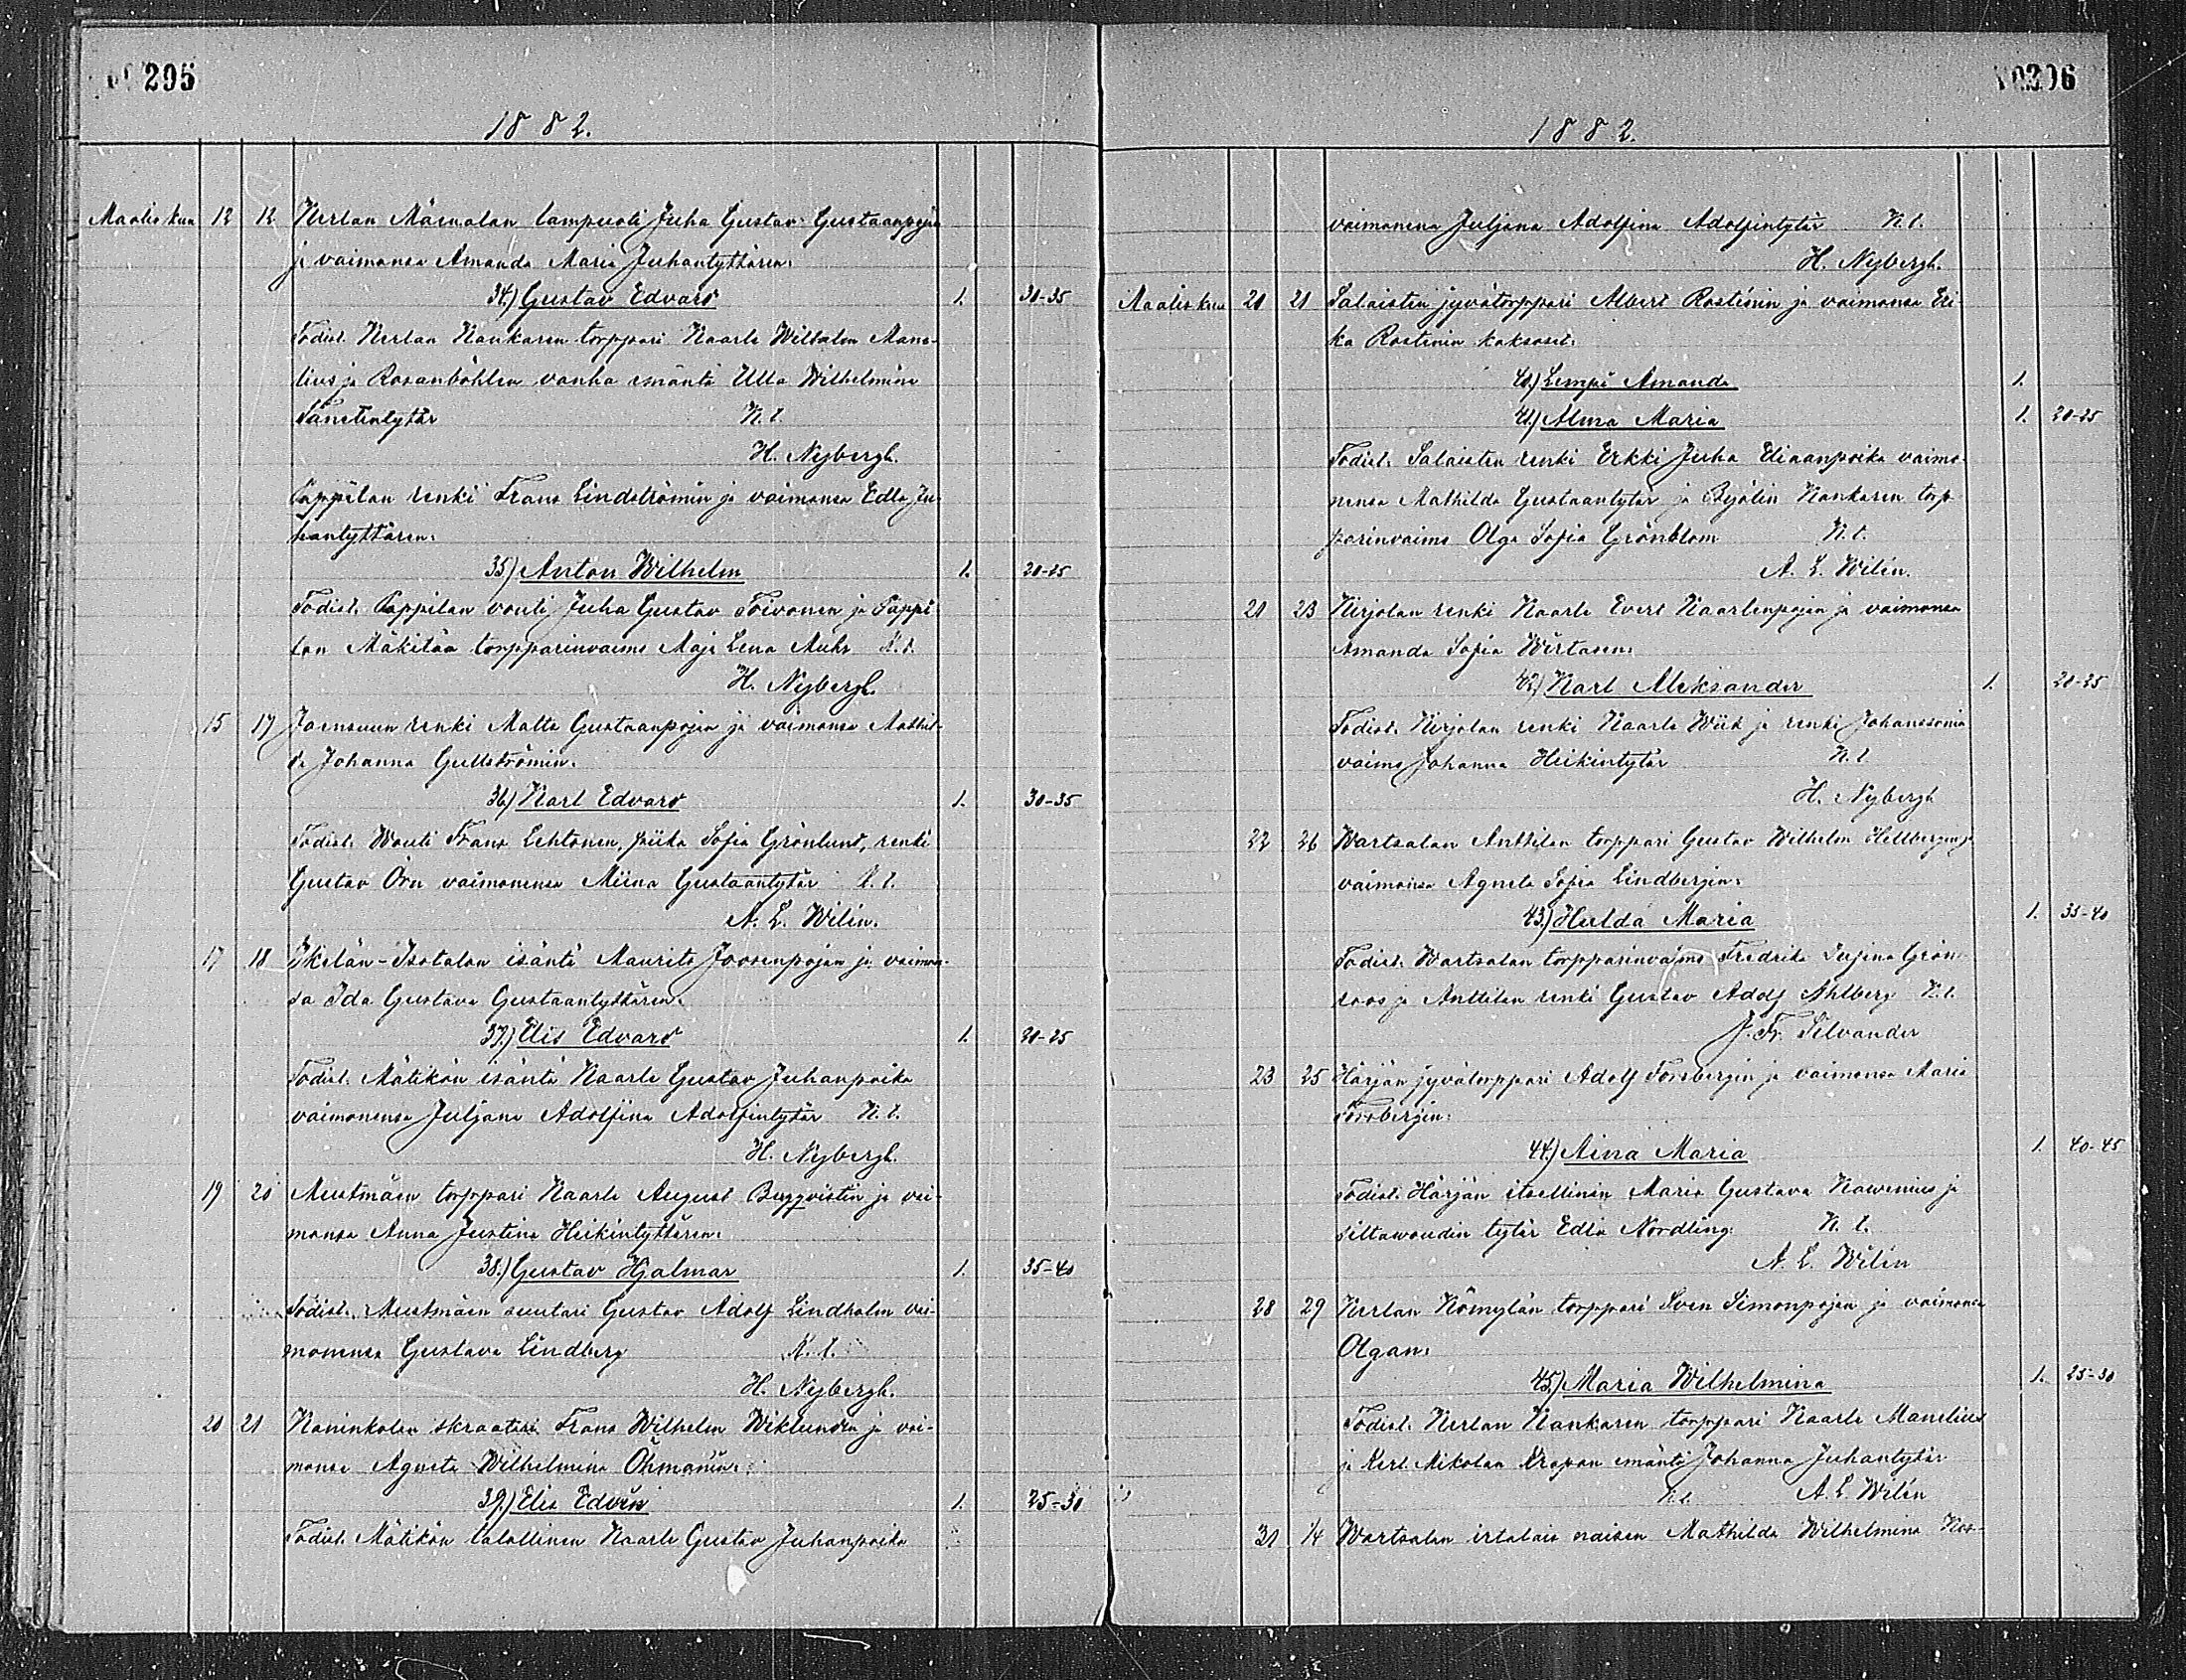 295
1882.
Maaliskuu 12 12 Kerlan Mäenalan lampuoti Juha Gustav Gustaanpojan
ja vaimonsa Amanda Maria Juhantyttären:
34.) Gustav Edvard 1. 30-35
Todist. Kerlan Kankaren torppari Kaarle Wilhelm Mane-
lius ja Rosanböhlen vanha emäntä Ulla Wilhelmina
Tanelintytär K. t.
H. Nybergh.
Pappilan renki Frans Lindströmin ja vaimonsa Edla Ju-
hantyttären:
35.) Anton Wilhelm 1. 20-25
Todist. Pappilan vouti Juha Gustav Toivonen ja Pappi-
lan Mäkitän torpparinvaimo Maja Lena Muhr K. t.
H. Nybergh.
15 17 Joensuun renki Matts Gustaanpojan ja vaimonsa Mathil-
da Johanna Gullströmin.
36.) Karl Edvard 1. 30-35
Todist. Wouti Frans Lehtonen, piika Sofia Grönlund, renki
Gustav Örn vaimonensa Miina Gustaantytär K. t.
A. L. Wilén.
17 18 Ykelän-Isotalon isäntä Maurits Joosenpojan ja vaimon-
sa Ida Gustava Gustaantyttären.
37.) Elis Edvard 1. 20-25
Todist. Mätikön isäntä Kaarle Gustav Juhanpoika
vaimonensa Juljana Adolfina Adolfintytär K. t.
H. Nybergh.
19 20 Mustmäen torppari Kaarle August Bergqvistin ja vai-
monsa Anna Justina Heikintyttären:
38.) Gustav Hjalmar 1. 35-40
Todist. Mustmäen suutari Gustav Adolf Lindholm vai-
monensa Gustava Lindberg K. t.
H. Nybergh.
20 21 Kaninkolan skraatari Frans Wilhelm Wiklundin ja vai-
monsa Agneta Wilhelmina Öhmanin:
39.) Elis Edvin 1. 25-30
Todist. Mätikön talollinen Kaarle Gustav Juhanpoika
296
1882.
vaimonensa Juljana Adolfina Adolfintytär K. t.
H. Nybergh.
Maaliskuu 20 21 Salaisten jyvätorppari Albert Rostinin ja vaimonsa Eri-
ka Rostinin kaksoset:
40.) Lempi Amanda 1.
41.) Alma Maria 1. 20-25
Todist. Salaisten renki Erkki Juha Eliaanpoika vaimo-
nensa Mathilda Gustaantytär ja Kankaren torp-
parinvaimo Olga Sofia Grönblom K. t.
A. L. Wilén.
20 23 Kirjolan renki Kaarle Evert Kaarlenpojan ja vaimonsa
Amanda Sofia Wirtasen:
42.) Karl Aleksander 1. 20-25
Todist. Kirjolan renki Kaarle Wiik ja renki Johanssonin
vaimo Johanna Heikintytär K. t.
H. Nybergh
22 26 Wartsalan Anttilan torppari Gustav Wilhelm Hellbergin ja
vaimonsa Agneta Sofia Lindbergin:
43.) Hulda Maria 1. 35-40
Todist. Wartsalan torpparinvaimo Fredrika Grön-
roos ja Anttilan renki Gustav Adolf Ahlberg K. t.
J. Fr. Silvander
23 25 Härjän jyvätorppari Adolf Forsbergin ja vaimonsa Maria
Forsbergin:
44.) Aina Maria 1. 40-45
Todist. Härjän itsellinen Maria Gustava Nawenius ja
siltawoudin tytär Edla Nordling. K. t.
A. L. Wilén
28 29 Kerlan Kömylän torppari Sven Simonpojan ja vaimonsa
Olgan:
45.) Maria Wilhelmina 1. 25-30
Todist. Kerlan Kankaren torppari Kaarle Manelius
ja Kerl. Mikolan emäntä Johanna Juhantytär
K. t. A. L. Wilén
30 1/4 Wartsalan irtalais naisen Mathilda Wilhelmina